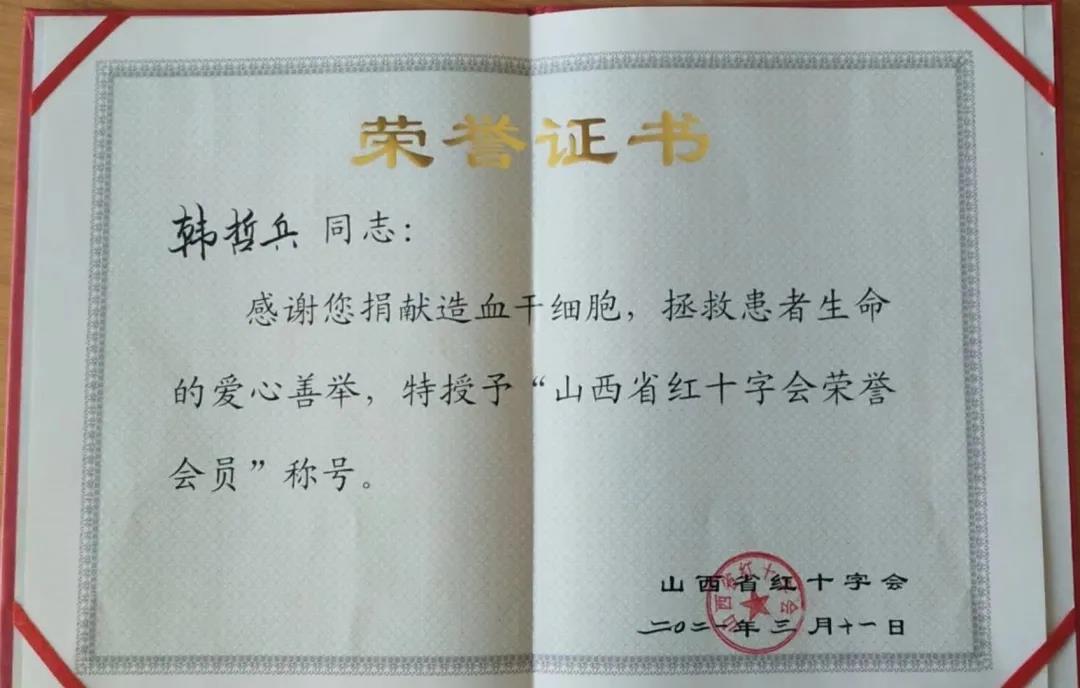 荣誉证书
韩哲兵 同志：
感谢您捐献造血干细胞，拯救患者生命
的爱心善举，特授予“山西省红十字会荣誉
会员”称号。
山西省红十字会
二〇二一年三月十一日
山西省红十字会